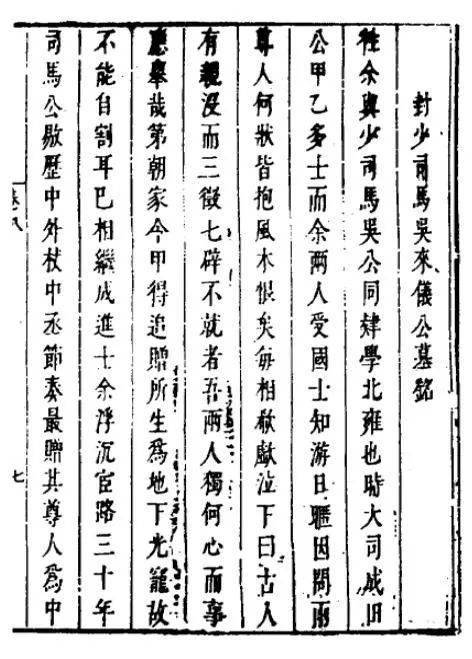 封少司馬吳來儀公墓銘
往余與少司馬吳公同肄學北雍也時大司成旧
公甲乙多士而余兩人受國士知游日驩因問兩
尊人何狀皆抱風木恨矣每相欷歔泣下曰古人
有親沒而三徵七辟不就者吾兩人獨何心而事
應舉哉第朝家令甲得追贈所生為地下光寵故
不能自割耳已相繼成進士余浮沉宦路三十年
司馬公敭歷中外杖中丞節奏最贈其尊人為中
卷八
七